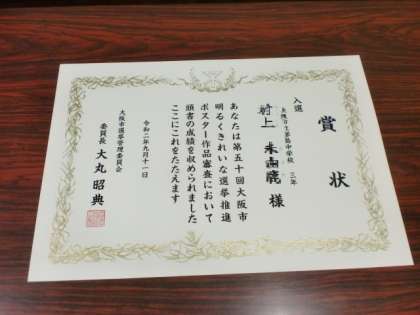 賞状
入選
中学校 三年
村上 様
あなたは第五十回大阪市
明るくきれいな選挙推進
ポスター作品審査において
頭書の成績を収められました
ここにこれをたたえます
令和二年九月十一日
大阪市選挙管理委員会
委員長 大丸昭典